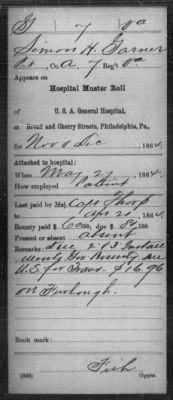 G 7 Va
Simon H. Garner
Pvt, Co. A, 7 Reg't Va
Appears on
Hospital Muster Roll
of
U. S. A. General Hospital,
at Broad and Cherry Streets, Philadelphia, Pa.,
for Nov & Dec, 1864.
Attached to hospital:
When May 27, 1864.
How employed Patient
Last paid by Maj. Capt Sharp
to Apr 20, 1864.
Bounty paid $ 60 due $ 100
Present or absent absent
Remarks: Due 2d 3 Install
ments for Bounty due
U.S. for Trans. $16.96
on Furlough.
Book mark:
Fish
(346) Copyist.